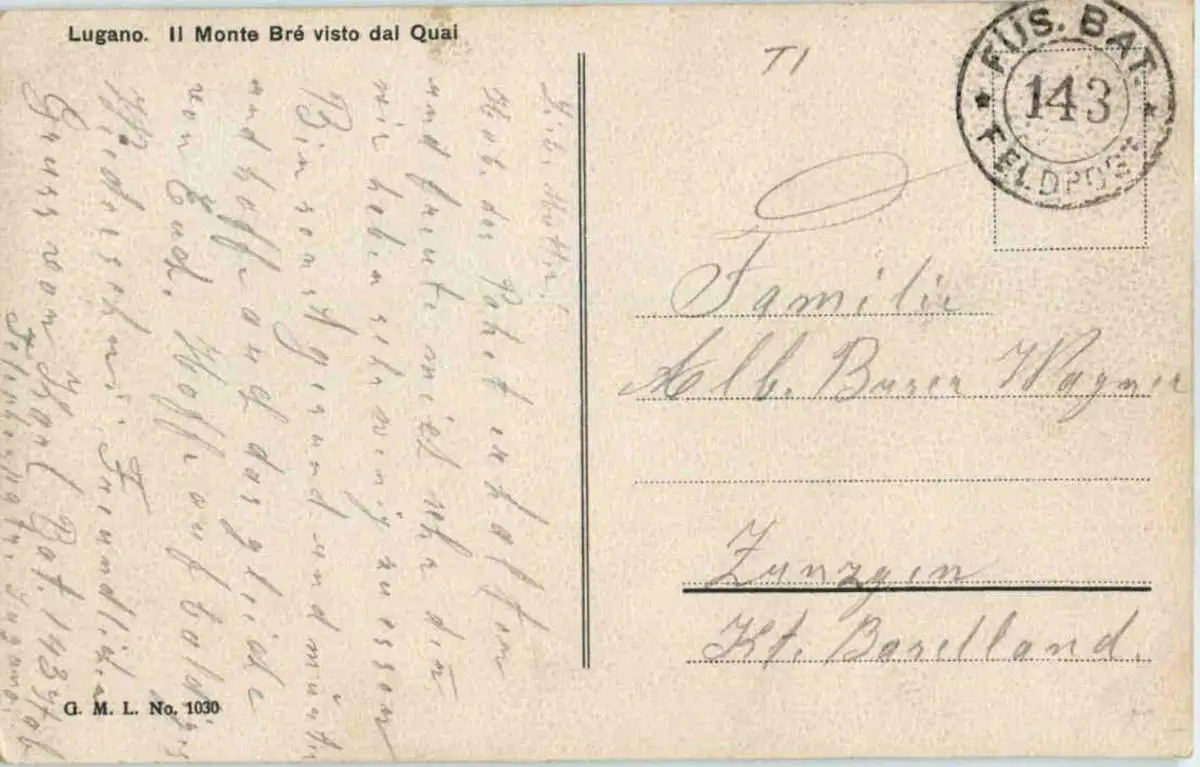 Lugano. Il Monte Bré visto dal Quai
Lieb. Mutter!
Hab. das Paket erhalten
und freute mich sehr den
wir haben sehr wenig zu essen
Bin sonst gesund und munter
und hoffe auch das gleiche
von Euch. Hoffe auf baldiges
Wiedersehn. Freundlichen
Gruss von Karl Bat. 143 Stab
Lugano.
G. M. L. No. 1030
T1
FÜS. BAT.
143
FELDPOST
Familie
Alb. Buser Wagner
Zunzgen
Kt. Baselland.